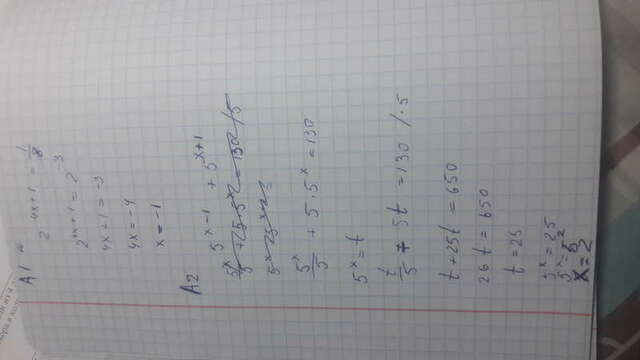 A1
2^{4x+1} = 1/8
2^{4x+1} = 2^{-3}
4x+1 = -3
4x = -4
x = -1
A2
5^{x-1} + 5^{x+1}
5^x/5 + 5·5^x = 130
5^x = t
t/5 + 5t = 130 /·5
t + 25t = 650
26t = 650
t = 25
5^x = 25
5^x = 5^2
x = 2